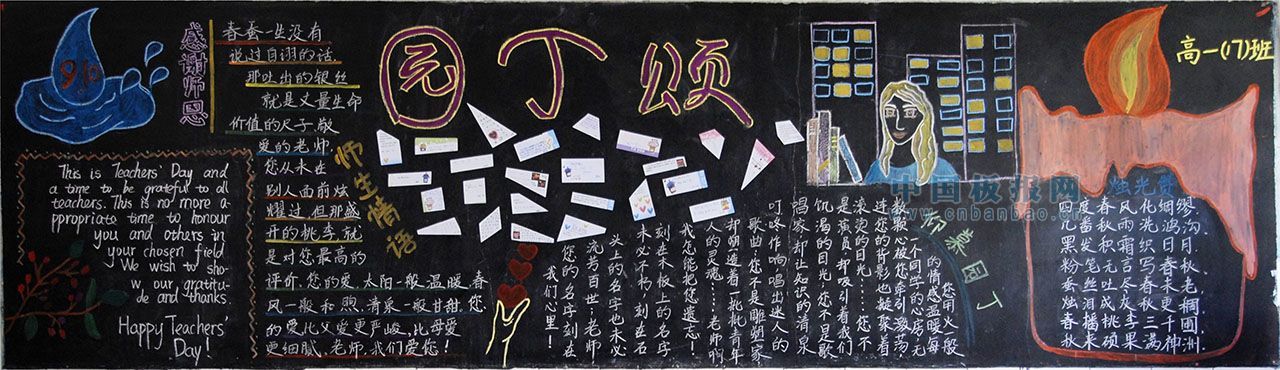 9.10
感谢师恩
春蚕一生没有
说过自诩的话,
那吐出的银丝
就是丈量生命
价值的尺子。敬
爱的老师,
您从未在
别人面前炫
耀过,但那盛
开的桃李,就
是对您最高的
评价。您的爱,太阳一般温暖,春
风一般和煦,清泉一般甘甜。您
的爱,比父爱更严峻,比母爱
更细腻。老师,我们爱您!
This is Teachers' Day and
a time to be grateful to all
teachers. This is no more a-
ppropriate time to honour
you and others in
your chosen field.
We wish to sho-
w our gratitu-
de and thanks.
Happy Teachers'
Day!
园丁颂
师生情语
师慕园丁
您用火一般
的情感温暖每
一个同学的心房,无
数颗心被您牵引激荡,
连您的背影也凝聚着
滚烫的目光…您不
是演员,却吸引着我们
饥渴的目光;您不是歌
唱家,却让知识的清泉
叮咚作响,唱出迷人的
歌曲;您不是雕塑家,
却塑造着一批批青年
人的灵魂……老师啊,
我怎能把您遗忘!
刻在木板上的名字
未必不朽,刻在石
头上的名字也未必
流芳百世;老师,
您的名字刻在
我们心里!
高一(17)班
中国板报网
www.cnbanbao.cn
烛光赞
四度春风化绸缪,
几番秋雨洗鸿沟。
黑发积霜织日月,
粉笔无言写春秋。
蚕丝吐尽春未老,
烛泪成灰秋更稠。
春播桃李三千圃,
秋来硕果满神洲。